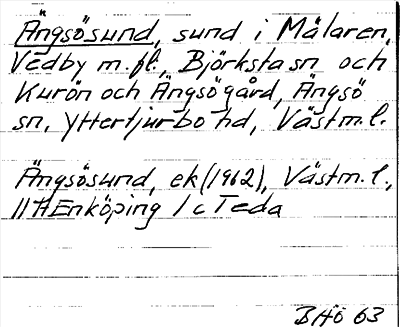 Ängsösund, sund i Mälaren,
Vedby m.fl., Björksta sn och
Kurön och Ängsögård, Ängsö
sn, Yttertjurbo hd, Västm.l.
Ängsösund, ek (1962), Västm.l.,
11 H Enköping 1 c Teda
BHö 63